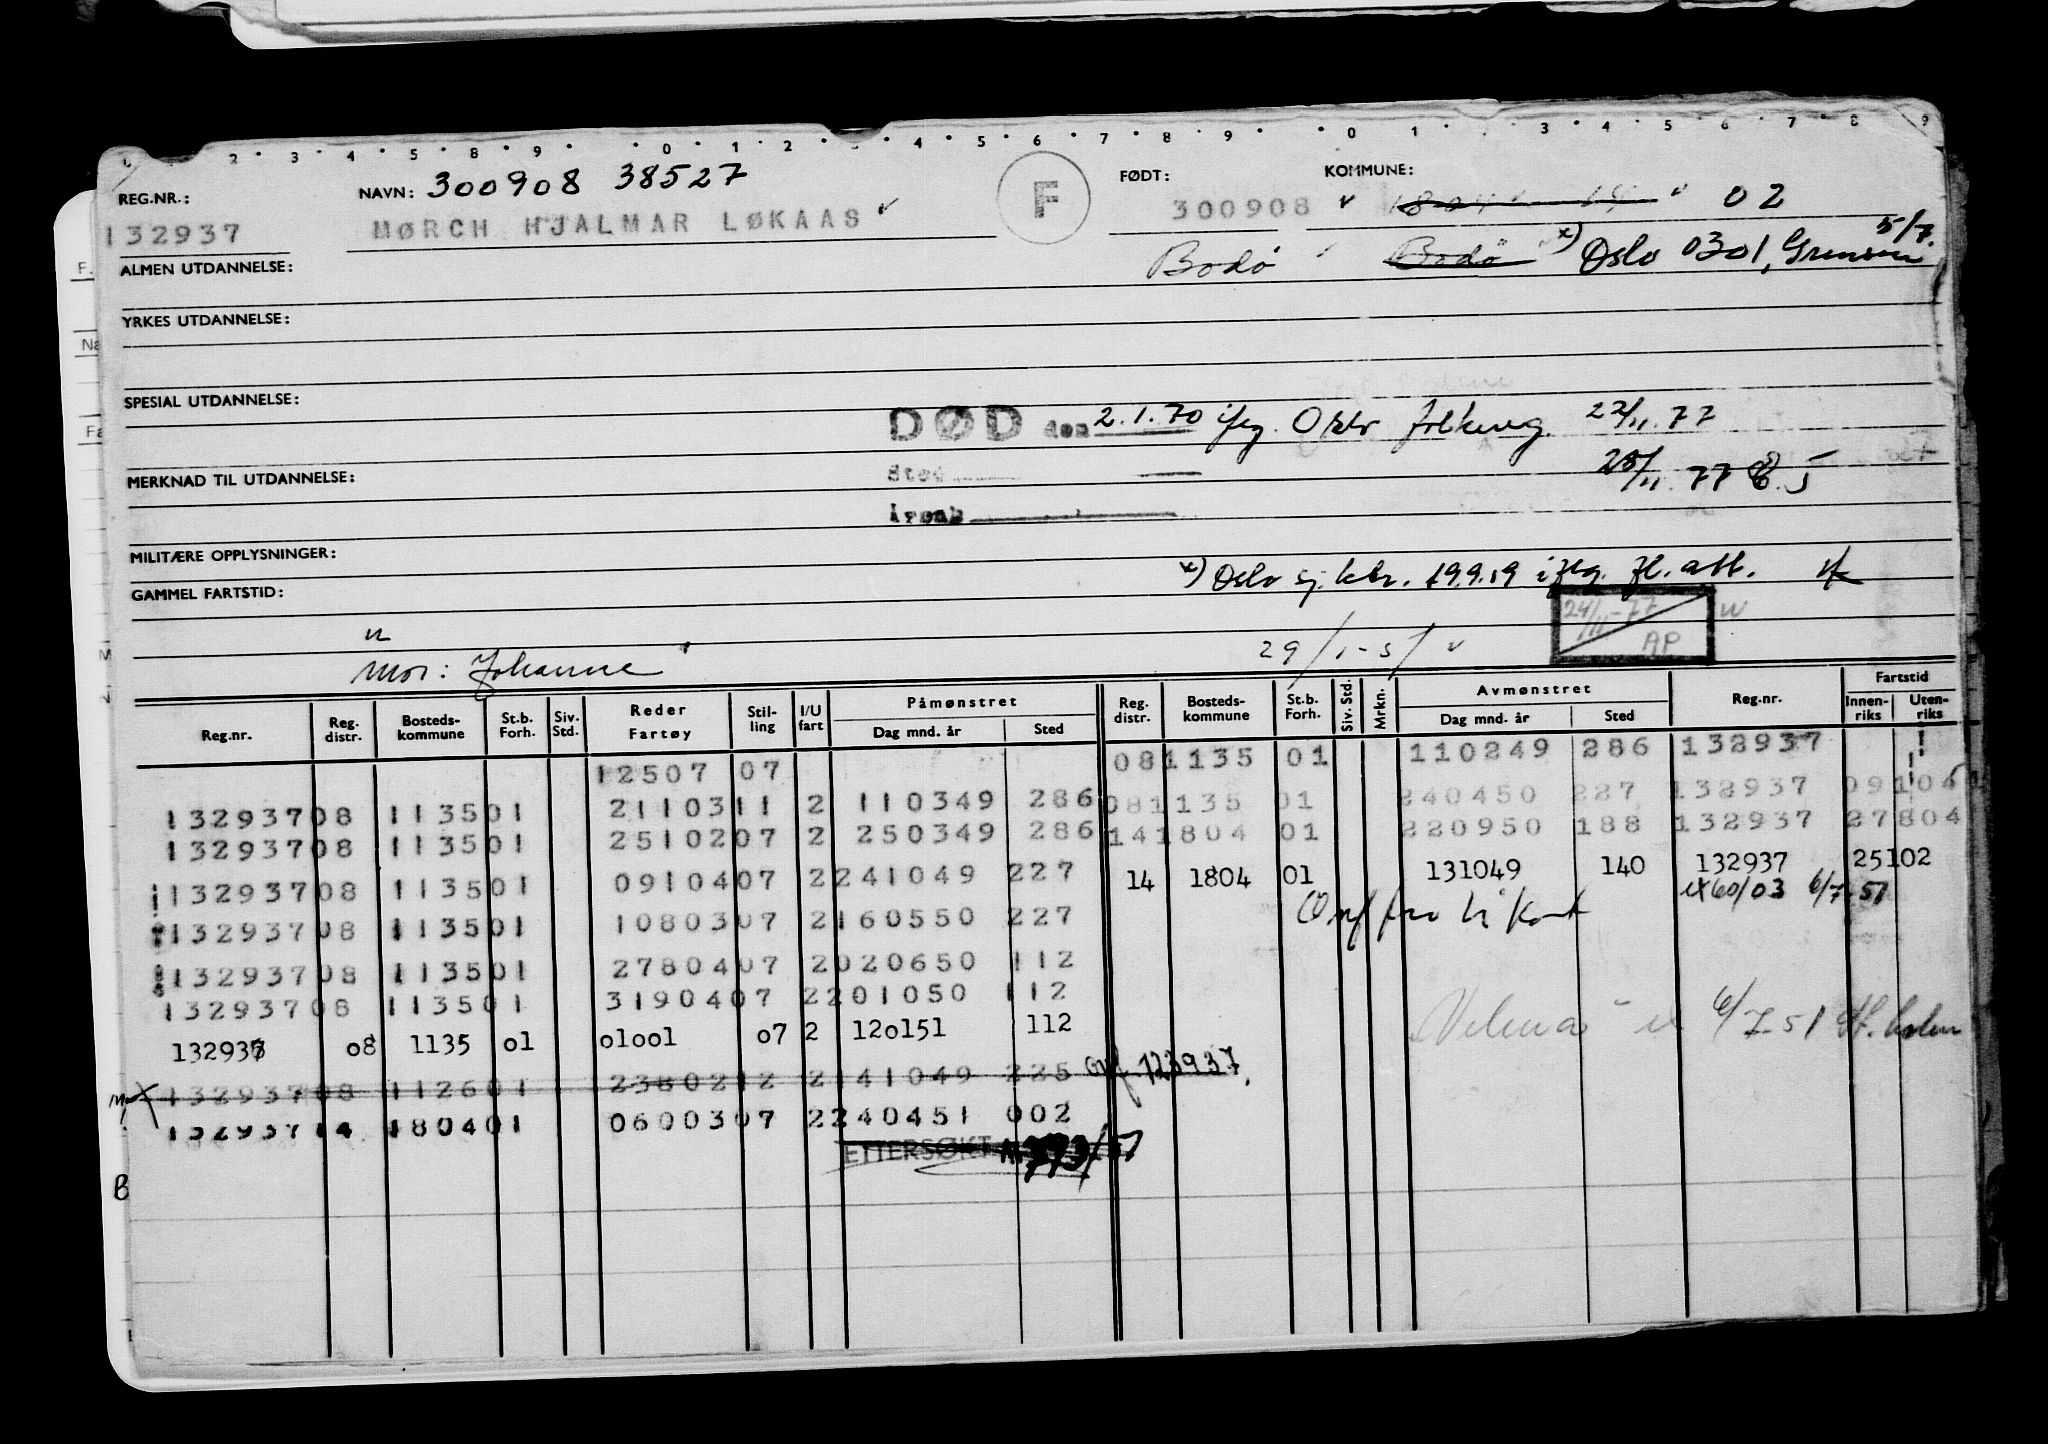 REG.NR.: NAVN: 300908 38527 F FØDT: KOMMUNE:
132937 MØRCH HJALMAR LØKAAS 300908 02
ALMEN UTDANNELSE: Bodø Bodø x) Oslo 0301, 5/7.
YRKES UTDANNELSE:
SPESIAL UTDANNELSE:
DØD den 2.1.70 22/11.77
MERKNAD TIL UTDANNELSE: Sted 28/11.77
Årsak
MILITÆRE OPPLYSNINGER:
GAMMEL FARTSTID: x) Oslo sj. ktr. 19.9.19 iflg. fl. att.
24/11-77 AP
Mor: Johanne
Reg.nr. Reg. distr. Bosteds-kommune St.b. Forh. Siv. Std. Reder Fartøy Stil-ling I/U fart Påmønstret Dag mnd. år Sted Reg. distr. Bosteds-kommune St.b. Forh. Siv. Std. Mrkn. Avmønstret Dag mnd. år Sted Reg.nr. Fartstid Innen-riks Uten-riks
12507 07 08 1135 01 110249 286 132937
132937 08 1135 01 21103 11 2 110349 286 08 1135 01 240450 227 132937 09104
132937 08 1135 01 25102 07 2 250349 286 14 1804 01 220950 188 132937 27804
132937 08 1135 01 09104 07 2 241049 227 14 1804 01 131049 140 132937 25102
132937 08 1135 01 10803 07 2 160550 227 60/03 6/7.51
132937 08 1135 01 27804 07 2 020650 112
132937 08 1135 01 31904 07 2 201050 112
132937 08 1135 01 01001 07 2 120151 112 6/7-51
132937 08 1126 01 23802 12 2 141049 225 123937.
132937 14 1804 01 06003 07 2 240451 002
ETTERSØKT
B